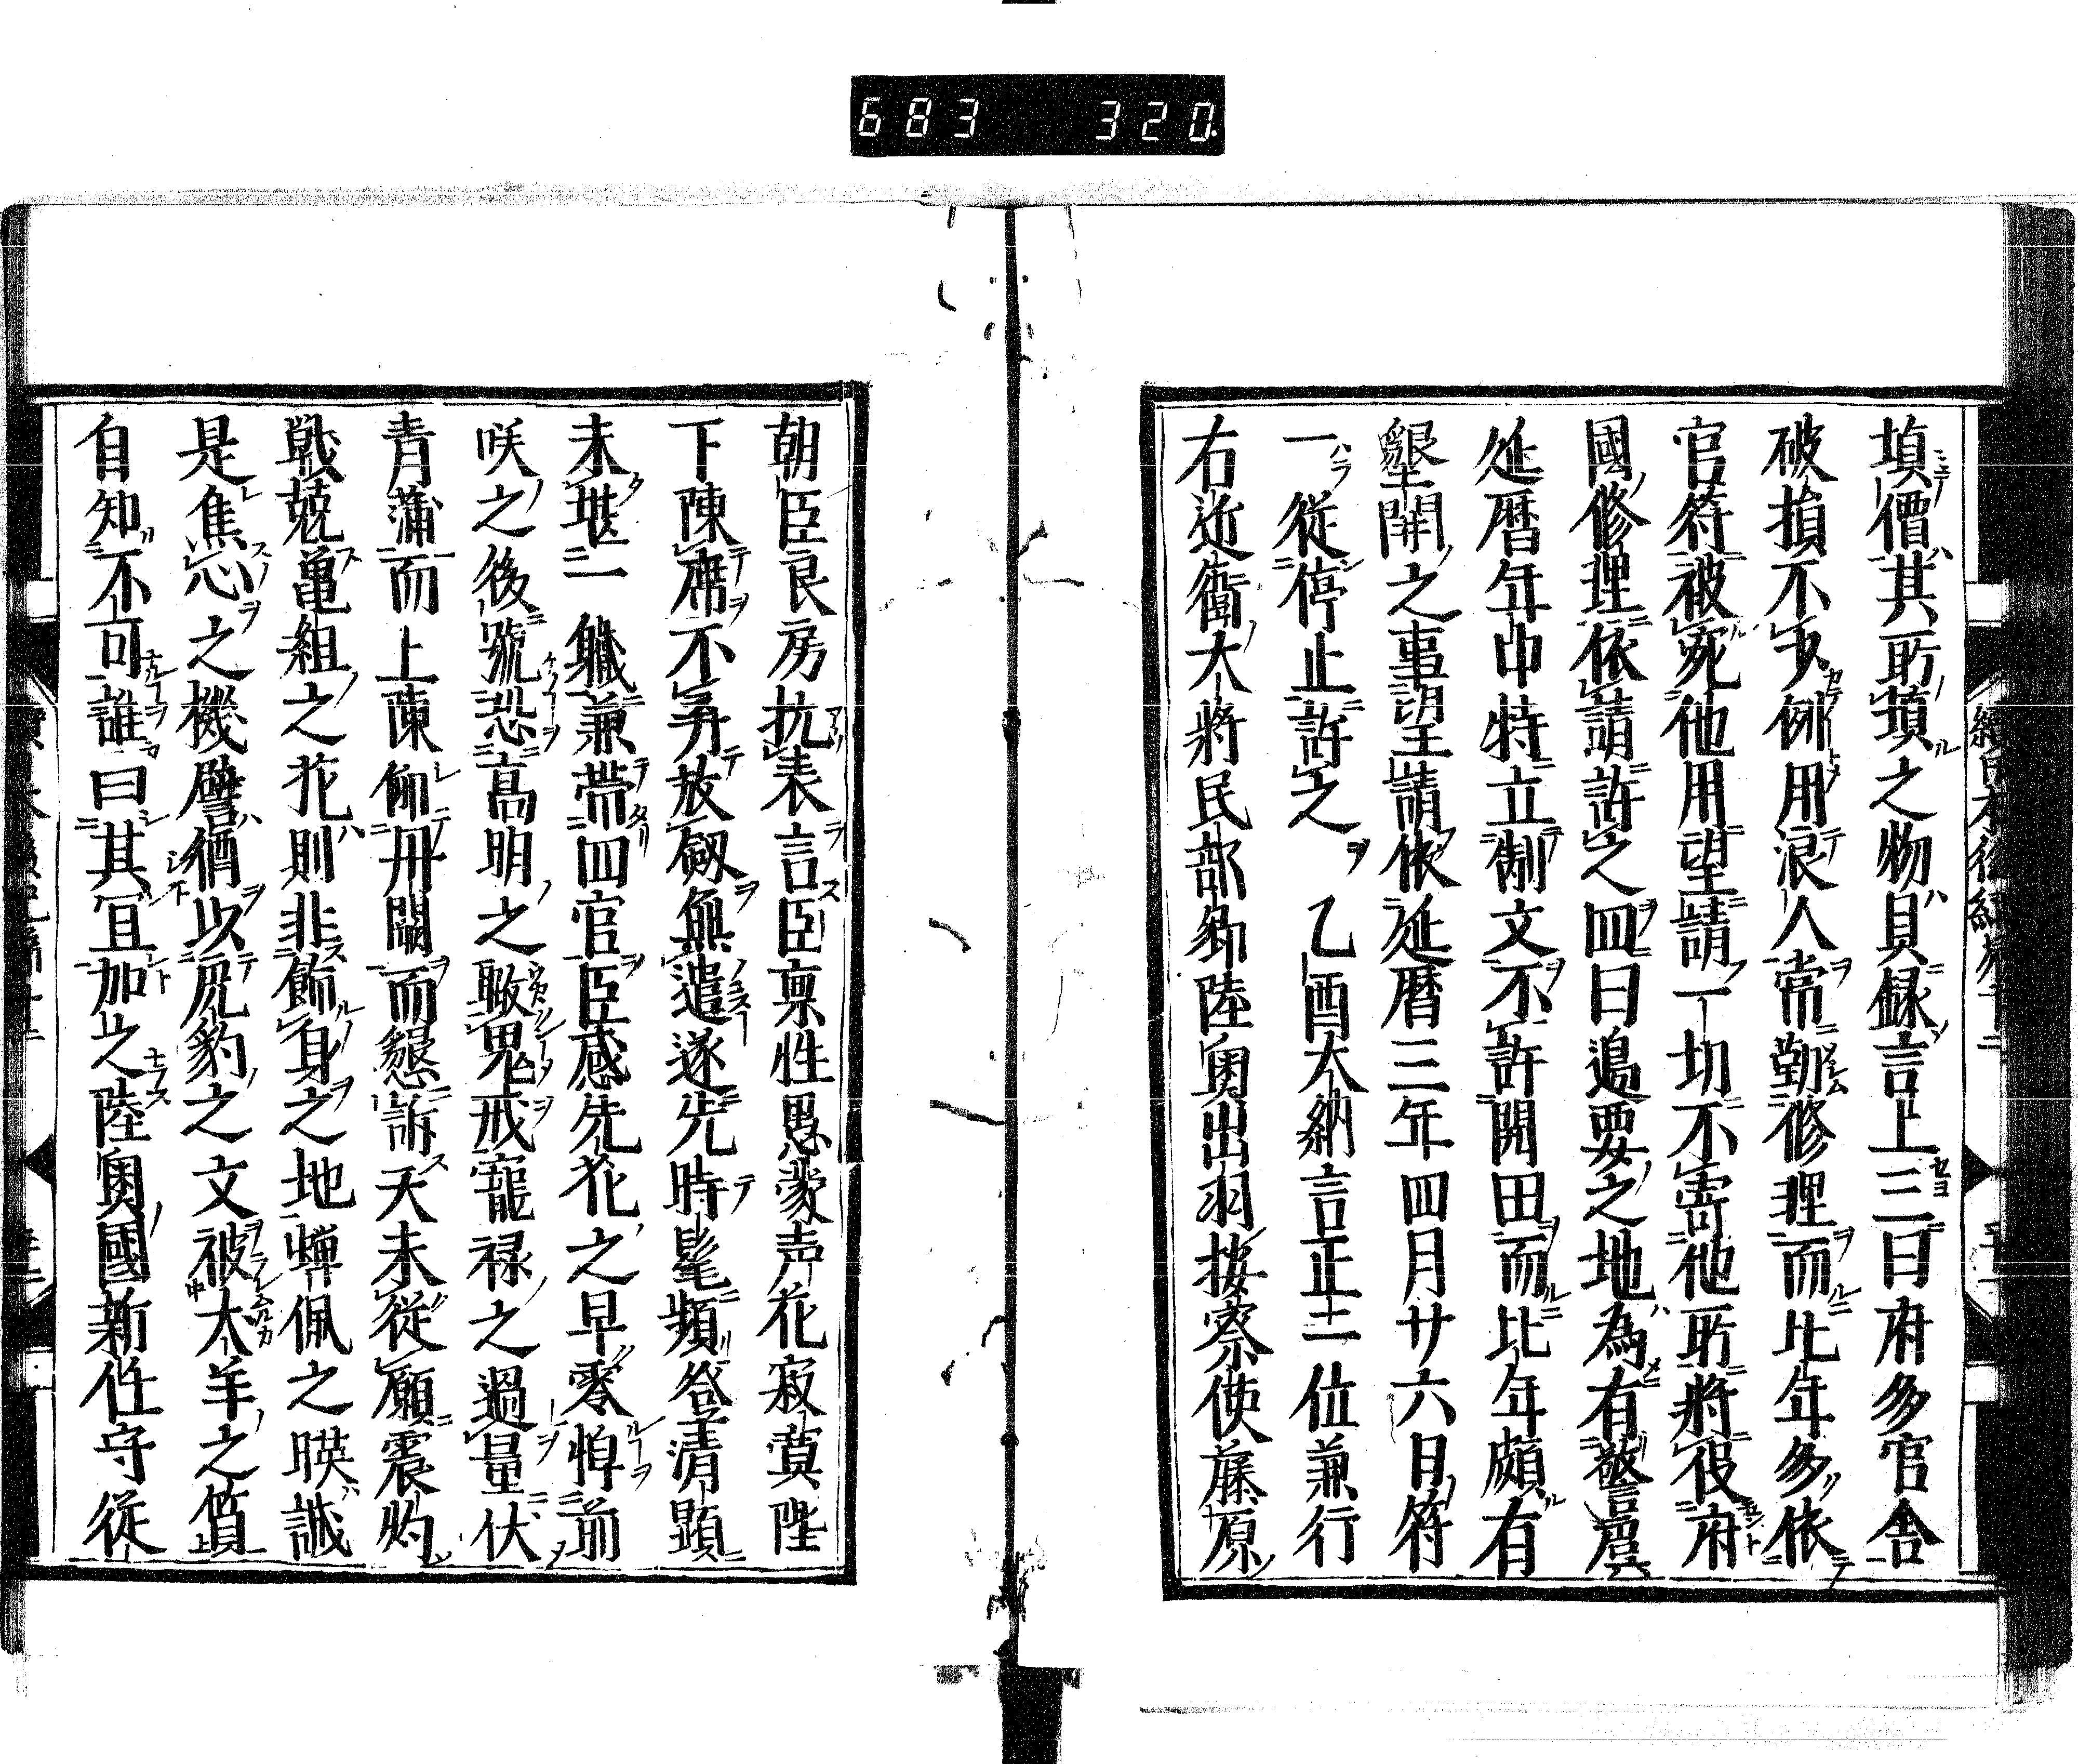 683 320
填價其所損之物具録言上三曰府多官舎
破損不因例用浪人常勤修理而比年多依
官符被宛他用望請一切不寄他所將役府
國修理依請許之四曰邊要之地為有警虞
延暦年中特立制文不許開田而比年頗有
墾開之事望請依延暦三年四月廿六日符
一従停止許之乙酉大納言正三位兼行
右近衛大將民部卿陸奥出羽按察使藤原
朝臣良房抗表言臣稟性愚蒙声花寂寞陛
下陳席不弃放劔無遣遂先時髦頻登清顕
未堪一職兼帯四官臣感先花之早零悼前
咲之後號恐高明之瞰鬼戒寵禄之過量伏
青蒲而上陳俯丹闕而懇訴天未従願震灼
戦兢亀組之花則非飾身之地蝉佩之暎誠
是焦心之機譬猶以虎豹之文被太羊之質
自知不可誰曰其宜加之陸奥國新任守従